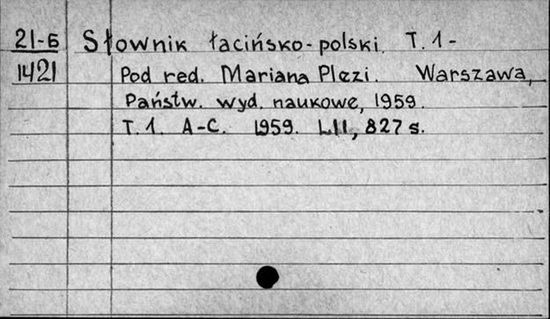 21-Б Słownik łacińsko-polski. T. 1-
1421 Pod red. Mariana Plezi. Warszawa,
Państw. wyd. naukowe, 1959.
T. 1. A-C. 1959. LII, 827 s.